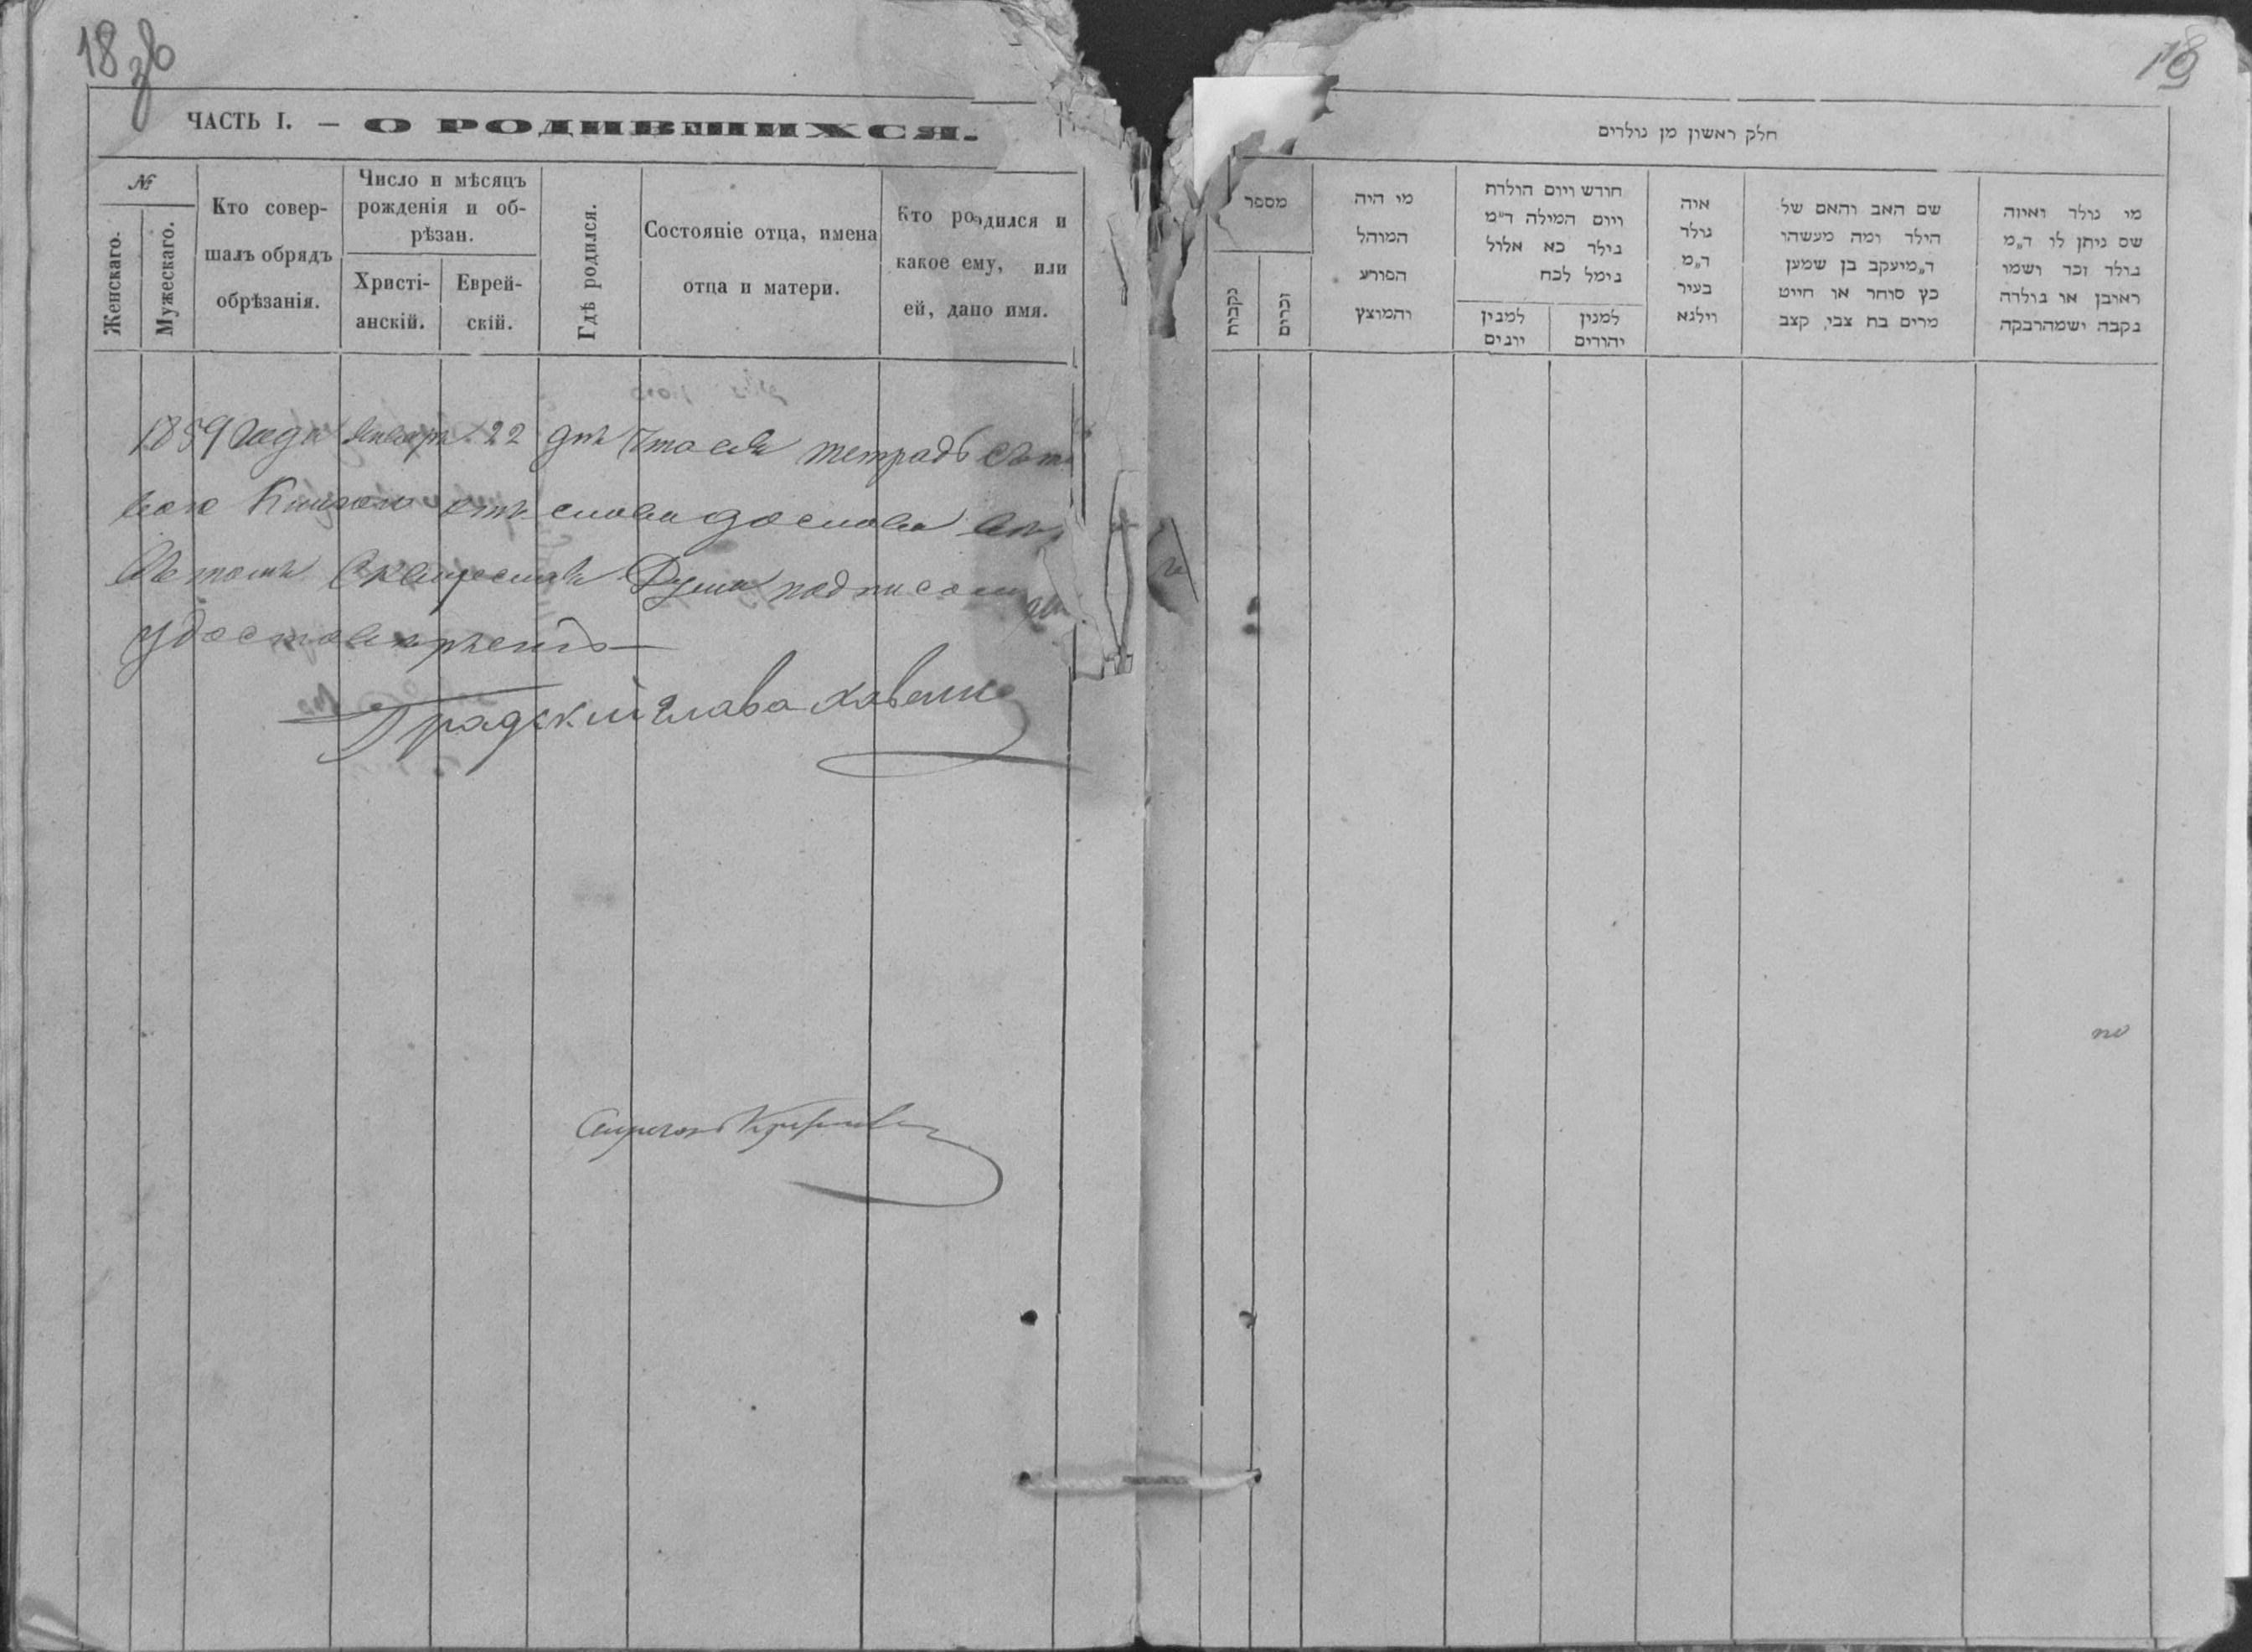 18 об
ЧАСТЬ I. — О РОДИВШИХСЯ.
№
Женскаго.
Мужескаго.
Кто совер-
шалъ обрядъ
обрѣзанія.
Число и мѣсяцъ
рожденія и об-
рѣзан.
Христі-
анскій.
Еврей-
скій.
Гдѣ родился.
Состояніе отца, имена
отца и матери.
Кто родился и
какое ему, или
ей, дано имя.
1859 года января 22 дня что сія тетрадь съ
книгою отъ слова до слова
въ томъ Думы подписомъ
удостовѣряетъ
Градскій глава
19
חלק ראשון מן נולדים
מספר
נקבות
זכרים
מי היה
המוהל
הפורע
והמוצץ
חודש ויום הולדת
ויום המילה ד״מ
נולד כא אלול
נימל לכח
למנין
יונים
למנין
יהודים
איה
נולד
ד״מ
בעיר
וילנא
שם האב והאם של
הילד ומה מעשהו
ד״מ יעקב בן שמען
כץ סוחר או חייט
מרים בת צבי, קצב
מי נולד ואיזה
שם ניתן לו ד״מ
נולד זכר ושמו
ראובן או נולדה
נקבה ושמה רבקה